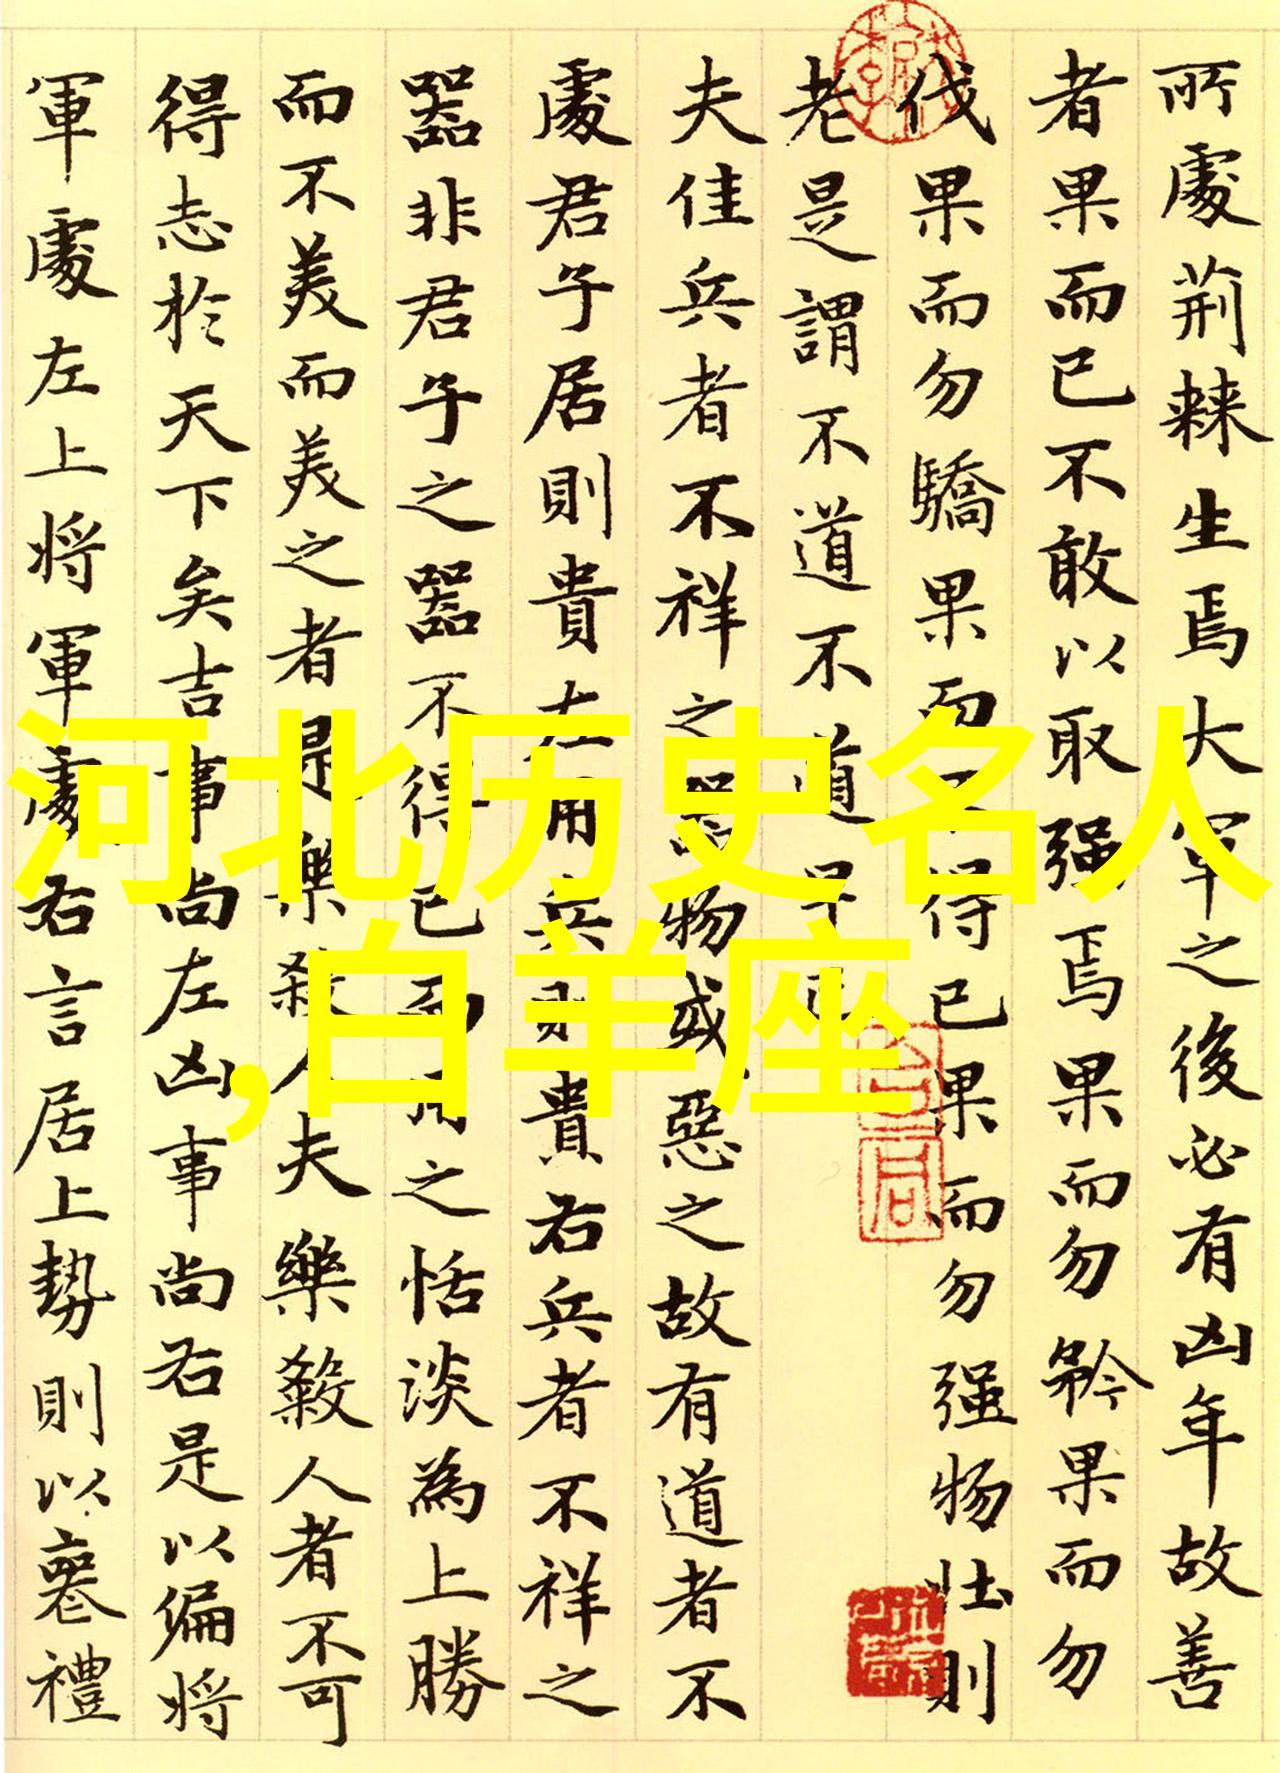 所處荊棘生焉大軍之後必有凶年故善
者果而已不敢以取强焉果而勿矜果而勿
伐果而勿驕果而不得已果而勿强物壮則
老是謂不道不道早已
夫佳兵者不祥之器物或惡之故有道者不
處君子居則貴左用兵則貴右兵者不祥之
器非君子之器不得已而用之恬淡為上勝
而不美而美之者是樂殺人夫樂殺人者不可
得志於天下矣吉事尚左凶事尚右是以偏將
軍處左上將軍處右言居上勢則以喪禮
河北历史名人
,白羊座